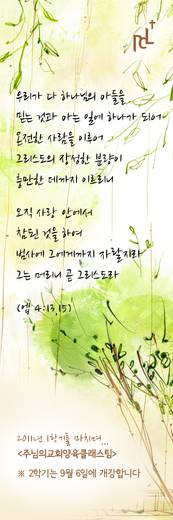 우리가 다 하나님의 아들을
믿는 것과 아는 일에 하나가 되어
온전한 사람을 이루어
그리스도의 장성한 분량이
충만한 데까지 이르리니
오직 사랑 안에서
참된 것을 하여
범사에 그에게까지 자랄지라
그는 머리니 곧 그리스도라
(엡 4:13,15)
2011년 1학기를 마치며...
<주님의교회양육클래스팀>
※ 2학기는 9월 6일에 개강합니다